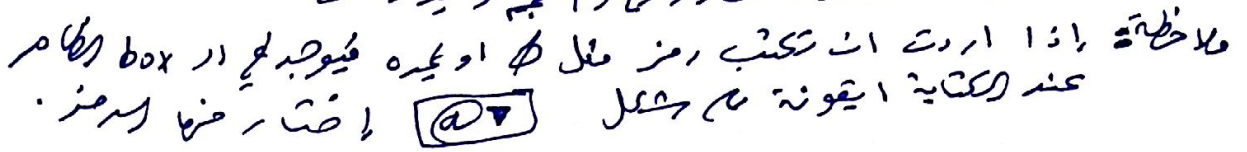 ملاحظة: إذا اردت ان تكتب رمز مثل Ø او غيره فيوجد في ال box الظاهر
عند الكتابة ايقونة على شكل @▼ إختار منها الرمز.